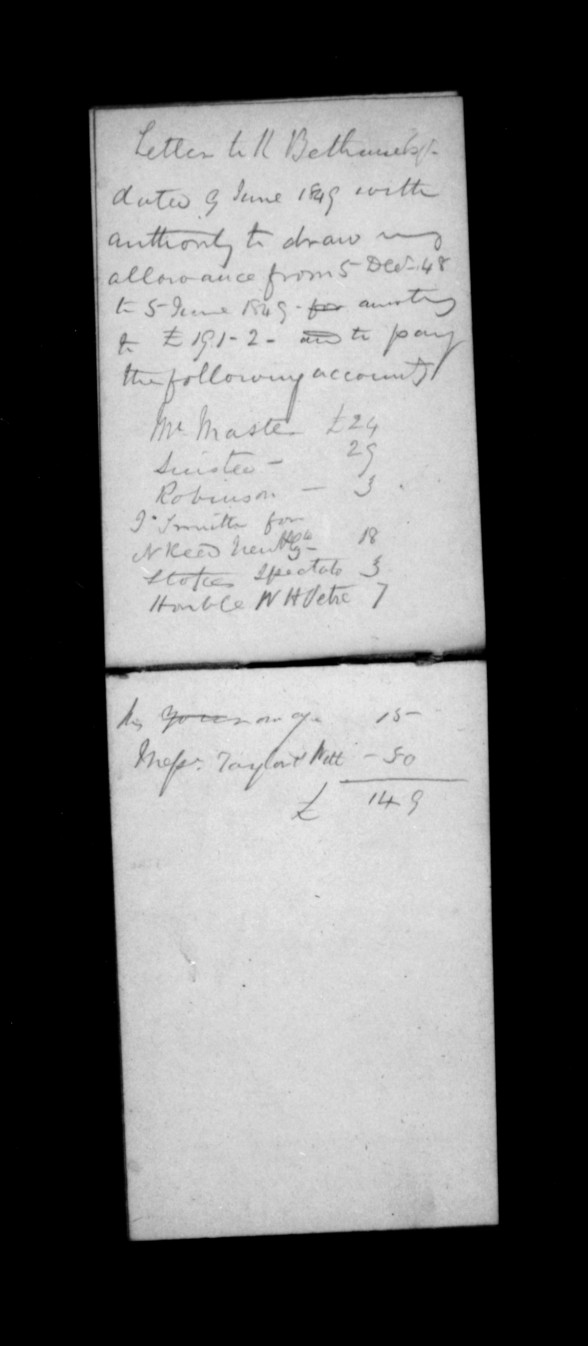 Letter to R Bethune Esq.
dated 9 June 1849 with
authority to draw my
allowance from 5 Decr. 48
to 5 June 1849 - for amounting
to £191-2- and to pay
the following accounts
Mr Master £24
29
Robinson — 3
J. Smith for
N Reed 18
Stokes Spectator 3
Honble W H Petre 7
my 15
Messrs. Taylor & Watt - 50
£ 149